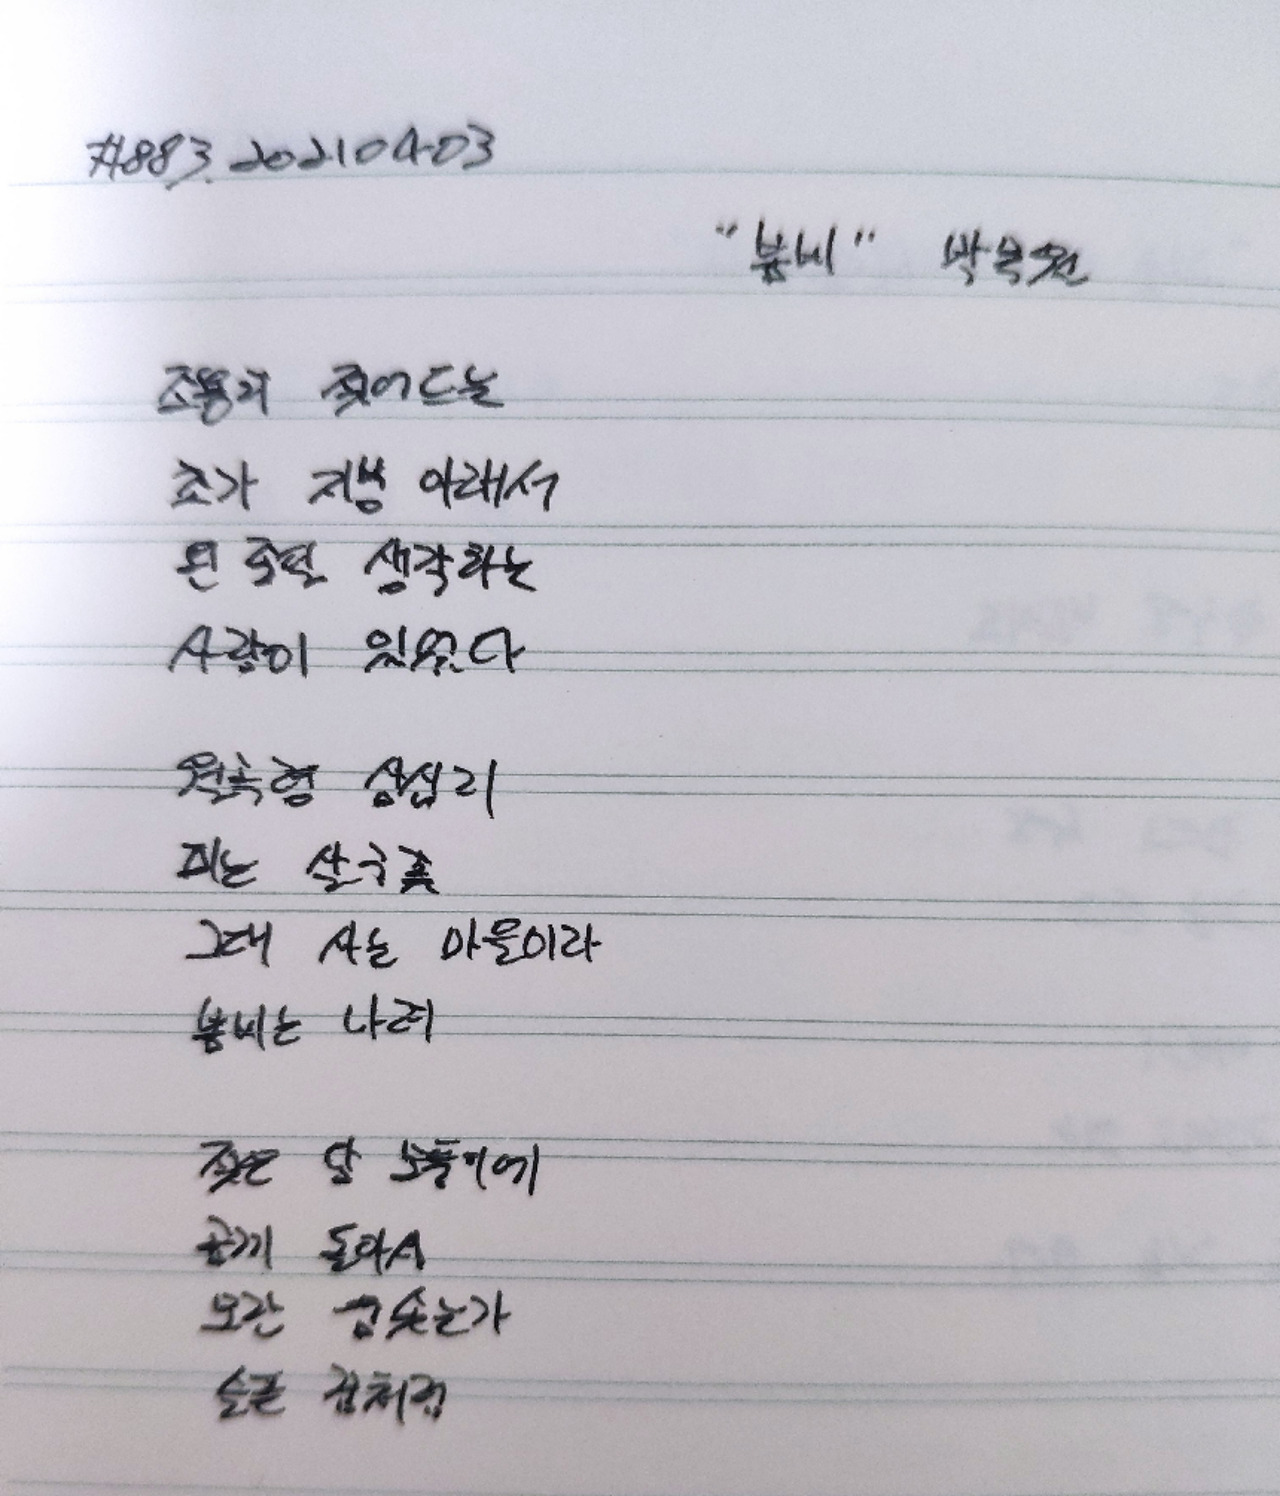 #883. 20210403
"봄비" 박목월
조용히 젖어드는
초가 지붕 아래서
왼 종일 생각하는
사람이 있었다
월곡령 삼십리
피는 살구꽃
그대 사는 마을이라
봄비는 나려
젖은 담 모퉁이에
곱게 돌아서
모란 움솟는가
슬픈 꿈처럼